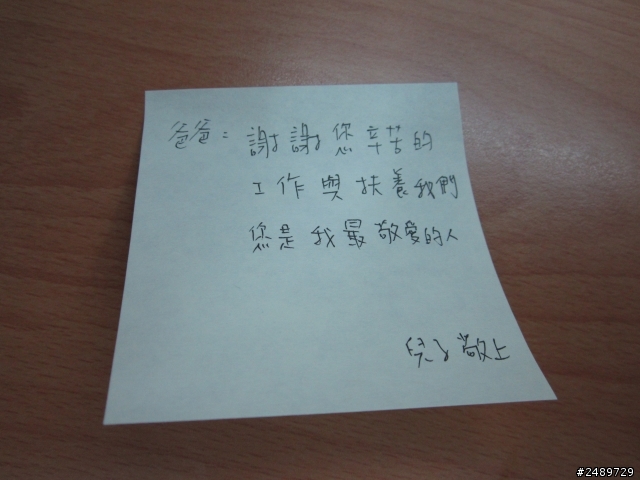 爸爸：謝謝您辛苦的
工作與扶養我們
您是我最敬愛的人
兒子敬上
#2489729